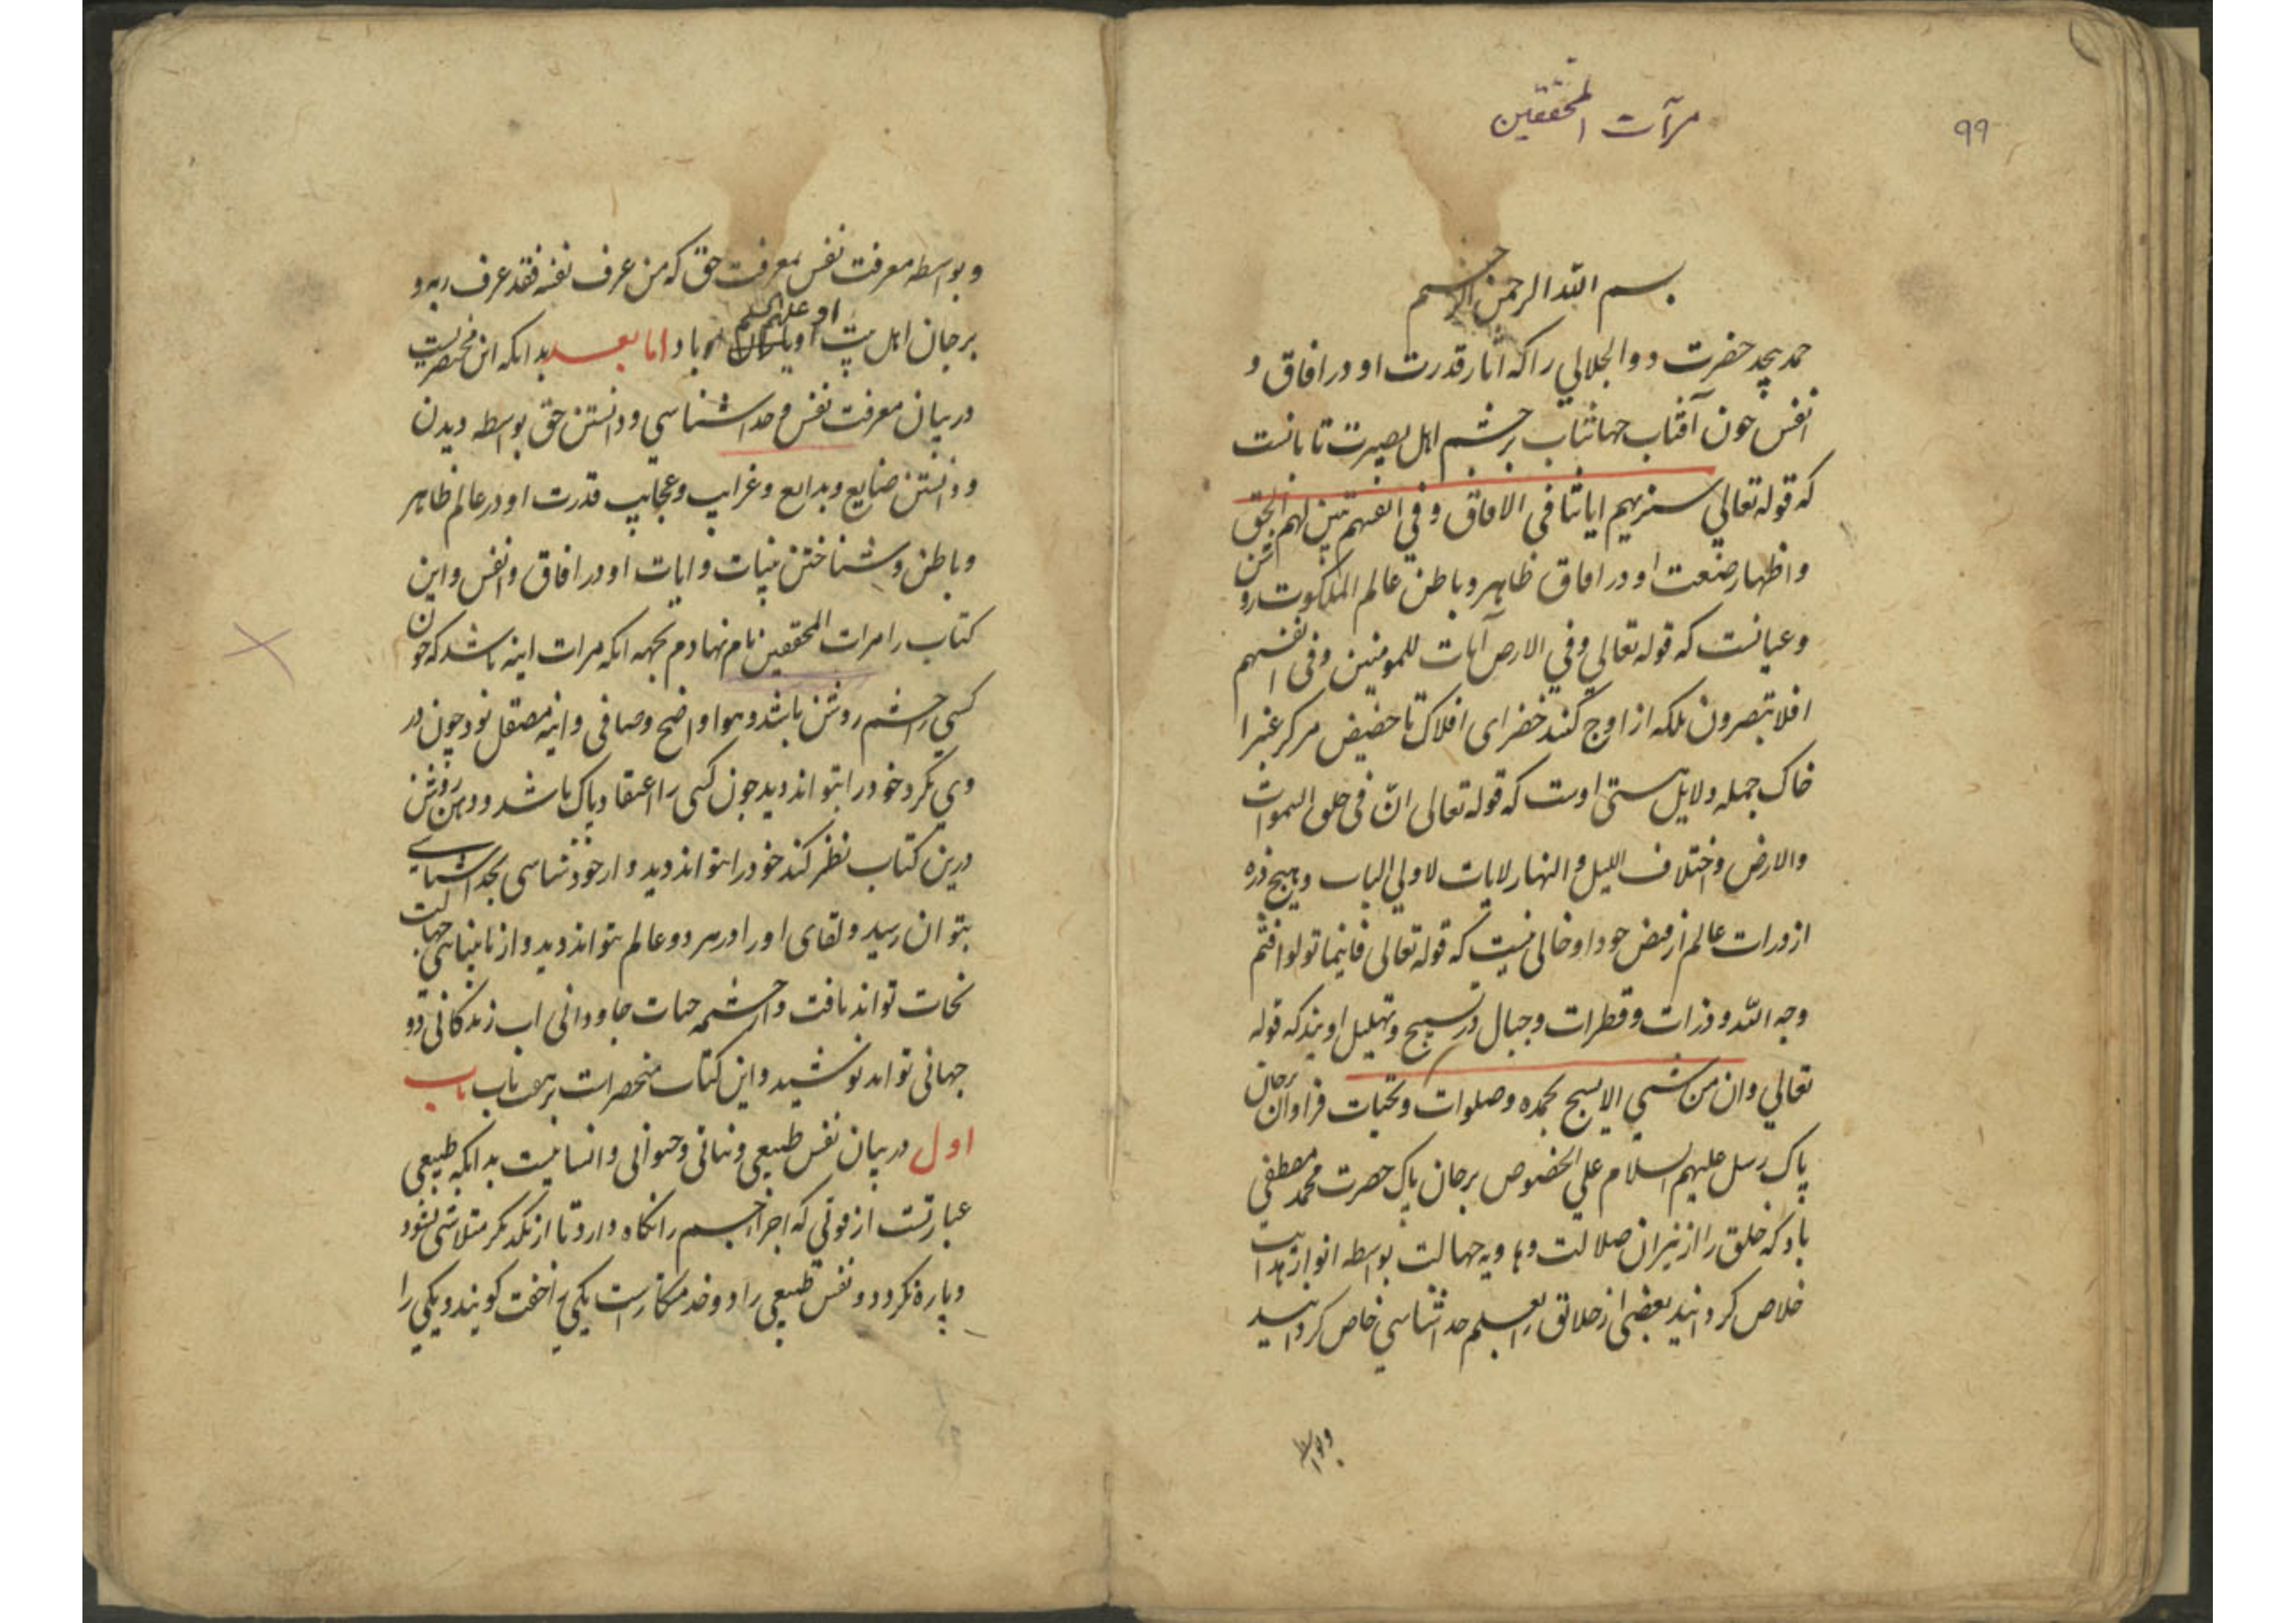 ۹۹
مرآت المحققین
بسم الله الرحمن الرحیم
حمد بیحد حضرت ذوالجلالی را که اثار قدرت او در افاق و
انفس چون آفتاب جهانتاب بر چشم اهل بصیرت تابانست
که قوله تعالی سنریهم ایاتنا فی الافاق و فی انفسهم تبین لهم الحق
و اظهار صنعت او در افاق ظاهر و باطن عالم الملکوت روشن
و عیانست که قوله تعالی و فی الارض آیات للمومنین و فی انفسهم
افلا تبصرون بلکه از اوج کنبد خضرای افلاک تا حضیض مرکز غبرا
خاک جمله دلایل هستی اوست که قوله تعالی انّ فی خلق السموات
والارض و اختلاف اللیل و النهار لایات لاولی الباب و هیچ ذره
از ذرات عالم از فیض جود او خالی نیست که قوله تعالی فاینما تولوا فثم
وجه الله و ذرات و قطرات و جبال در تسبیح و تهلیل اویند که قوله
تعالی و ان من شیی الا یسبح بحمده و صلوات و تحیات فراوان برجان
پاک رسل علیهم السلام علی الخصوص برجان پاک حضرت محمد مصطفی
باد که خلق را از نیران ضلالت و هاویه جهالت بواسطه انوار هدایت
خلاص کردانید بعضی از خلائق را بعلم خداشناسی خاص کردانید
و بواسطه
و بواسطه معرفت نفس بمعرفت حق که من عرف نفسه فقد عرف ربه و
برجان اهل بیت او و یاران او علیهم السلم باد اما بعد بدانکه این مختصریست
در بیان معرفت نفس و خداشناسی و دانستن حق بواسطه دیدن
و دانستن صنایع و بدایع و غرایب و عجایب قدرت او در عالم ظاهر
و باطن و شناختن بینات و ایات او در افاق و انفس و این
کتاب را مرات المحققین نام نهادم بجهه انکه مرات اینه باشد که چون
کسی را چشم روشن باشد و هوا واضح و صافی و اینه مصقل بود چون در
وی نکرد خود را بتواند دید چون کسی را اعتقاد پاک باشد و ذهن روشن
درین کتاب نظر کند خود را بتواند دید و از خودشناسی بخداشناسی
بتوان رسید و لقای او را در هر دو عالم بتواند دید و از نابینائی جهالت
نجات تواند یافت و از چشمه حیات جاودانی اب زندکانی دو
جهانی تواند نوشید و این کتاب منحصر است بر هفت باب باب
اول در بیان نفس طبیعی و نباتی و حیوانی و انسانیست بدانکه طبیعی
عبارتست از قوتی که اجزا جسم را نکاه دارد تا از یکدیکر متلاشی نشود
و پاره نکردد و نفس طبیعی را دو خدمتکار است یکی را خفت کویند و یکی را